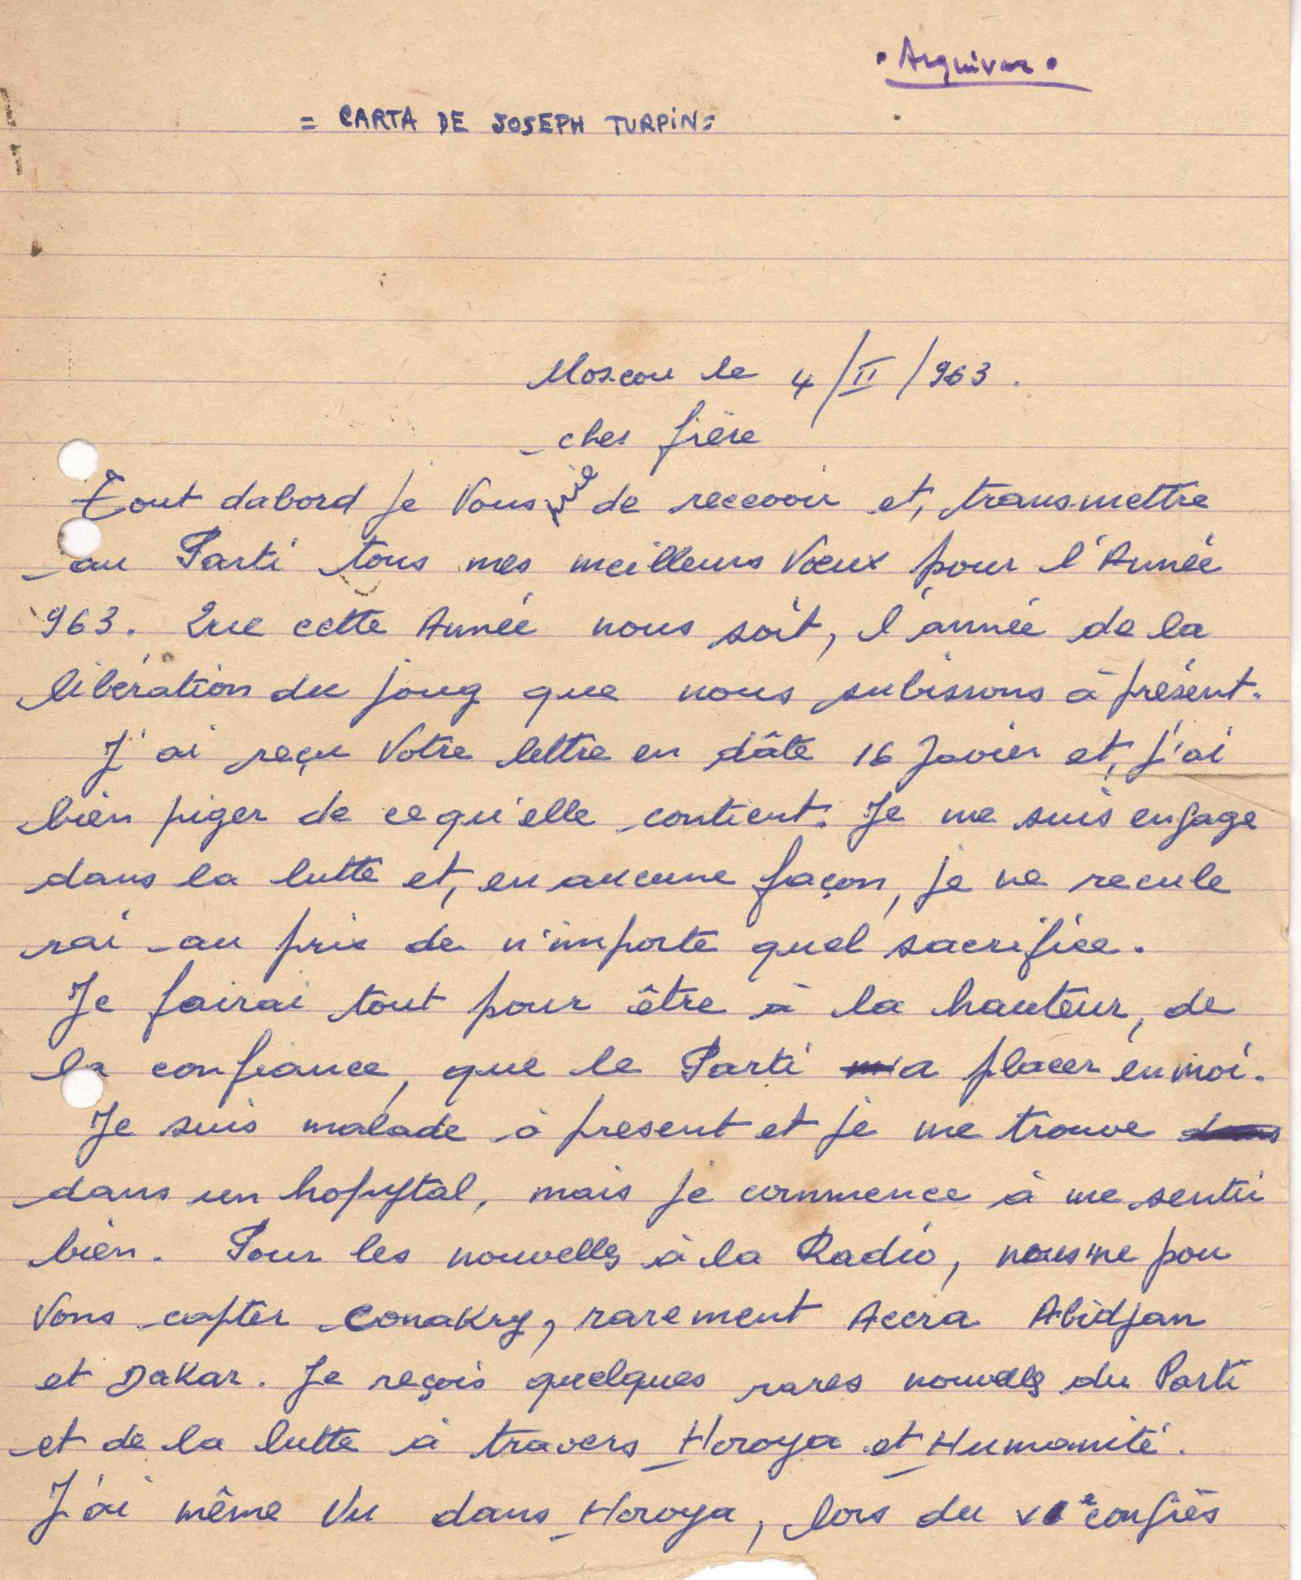 • Arquivar •
= CARTA DE JOSEPH TURPIN =
Moscou le 4/II/963.
cher frère
Tout dabord je Vous prie de recevoir et, transmettre
au Parti tous mes meilleurs Vœux pour l'Année
963. Que cette Année nous soit, l'année de la
libération du joug que nous subissons à présent.
J'ai reçu Votre lettre en dâte 16 Javier et, j'ai
bien piger de ce qu'elle contient. Je me suis engage
dans la lutte et, en aucune façon, je ne recule
rai au prix de n'importe quel sacrifice.
Je fairai tout pour être à la hauteur, de
la confiance, que le Parti a placer en moi.
Je suis malade à present et je me trouve
dans un hopystal, mais je commence à me sentir
bien. Pour les nouvelles à la Radio, nous ne pou
Vons capter Conakry, rarement Accra Abidjan
et Dakar. Je reçois quelques rares nouvelles du Parti
et de la lutte à travers Horoya et Humanité.
J'ai même Vu dans Horoya, lors du VIe congrès